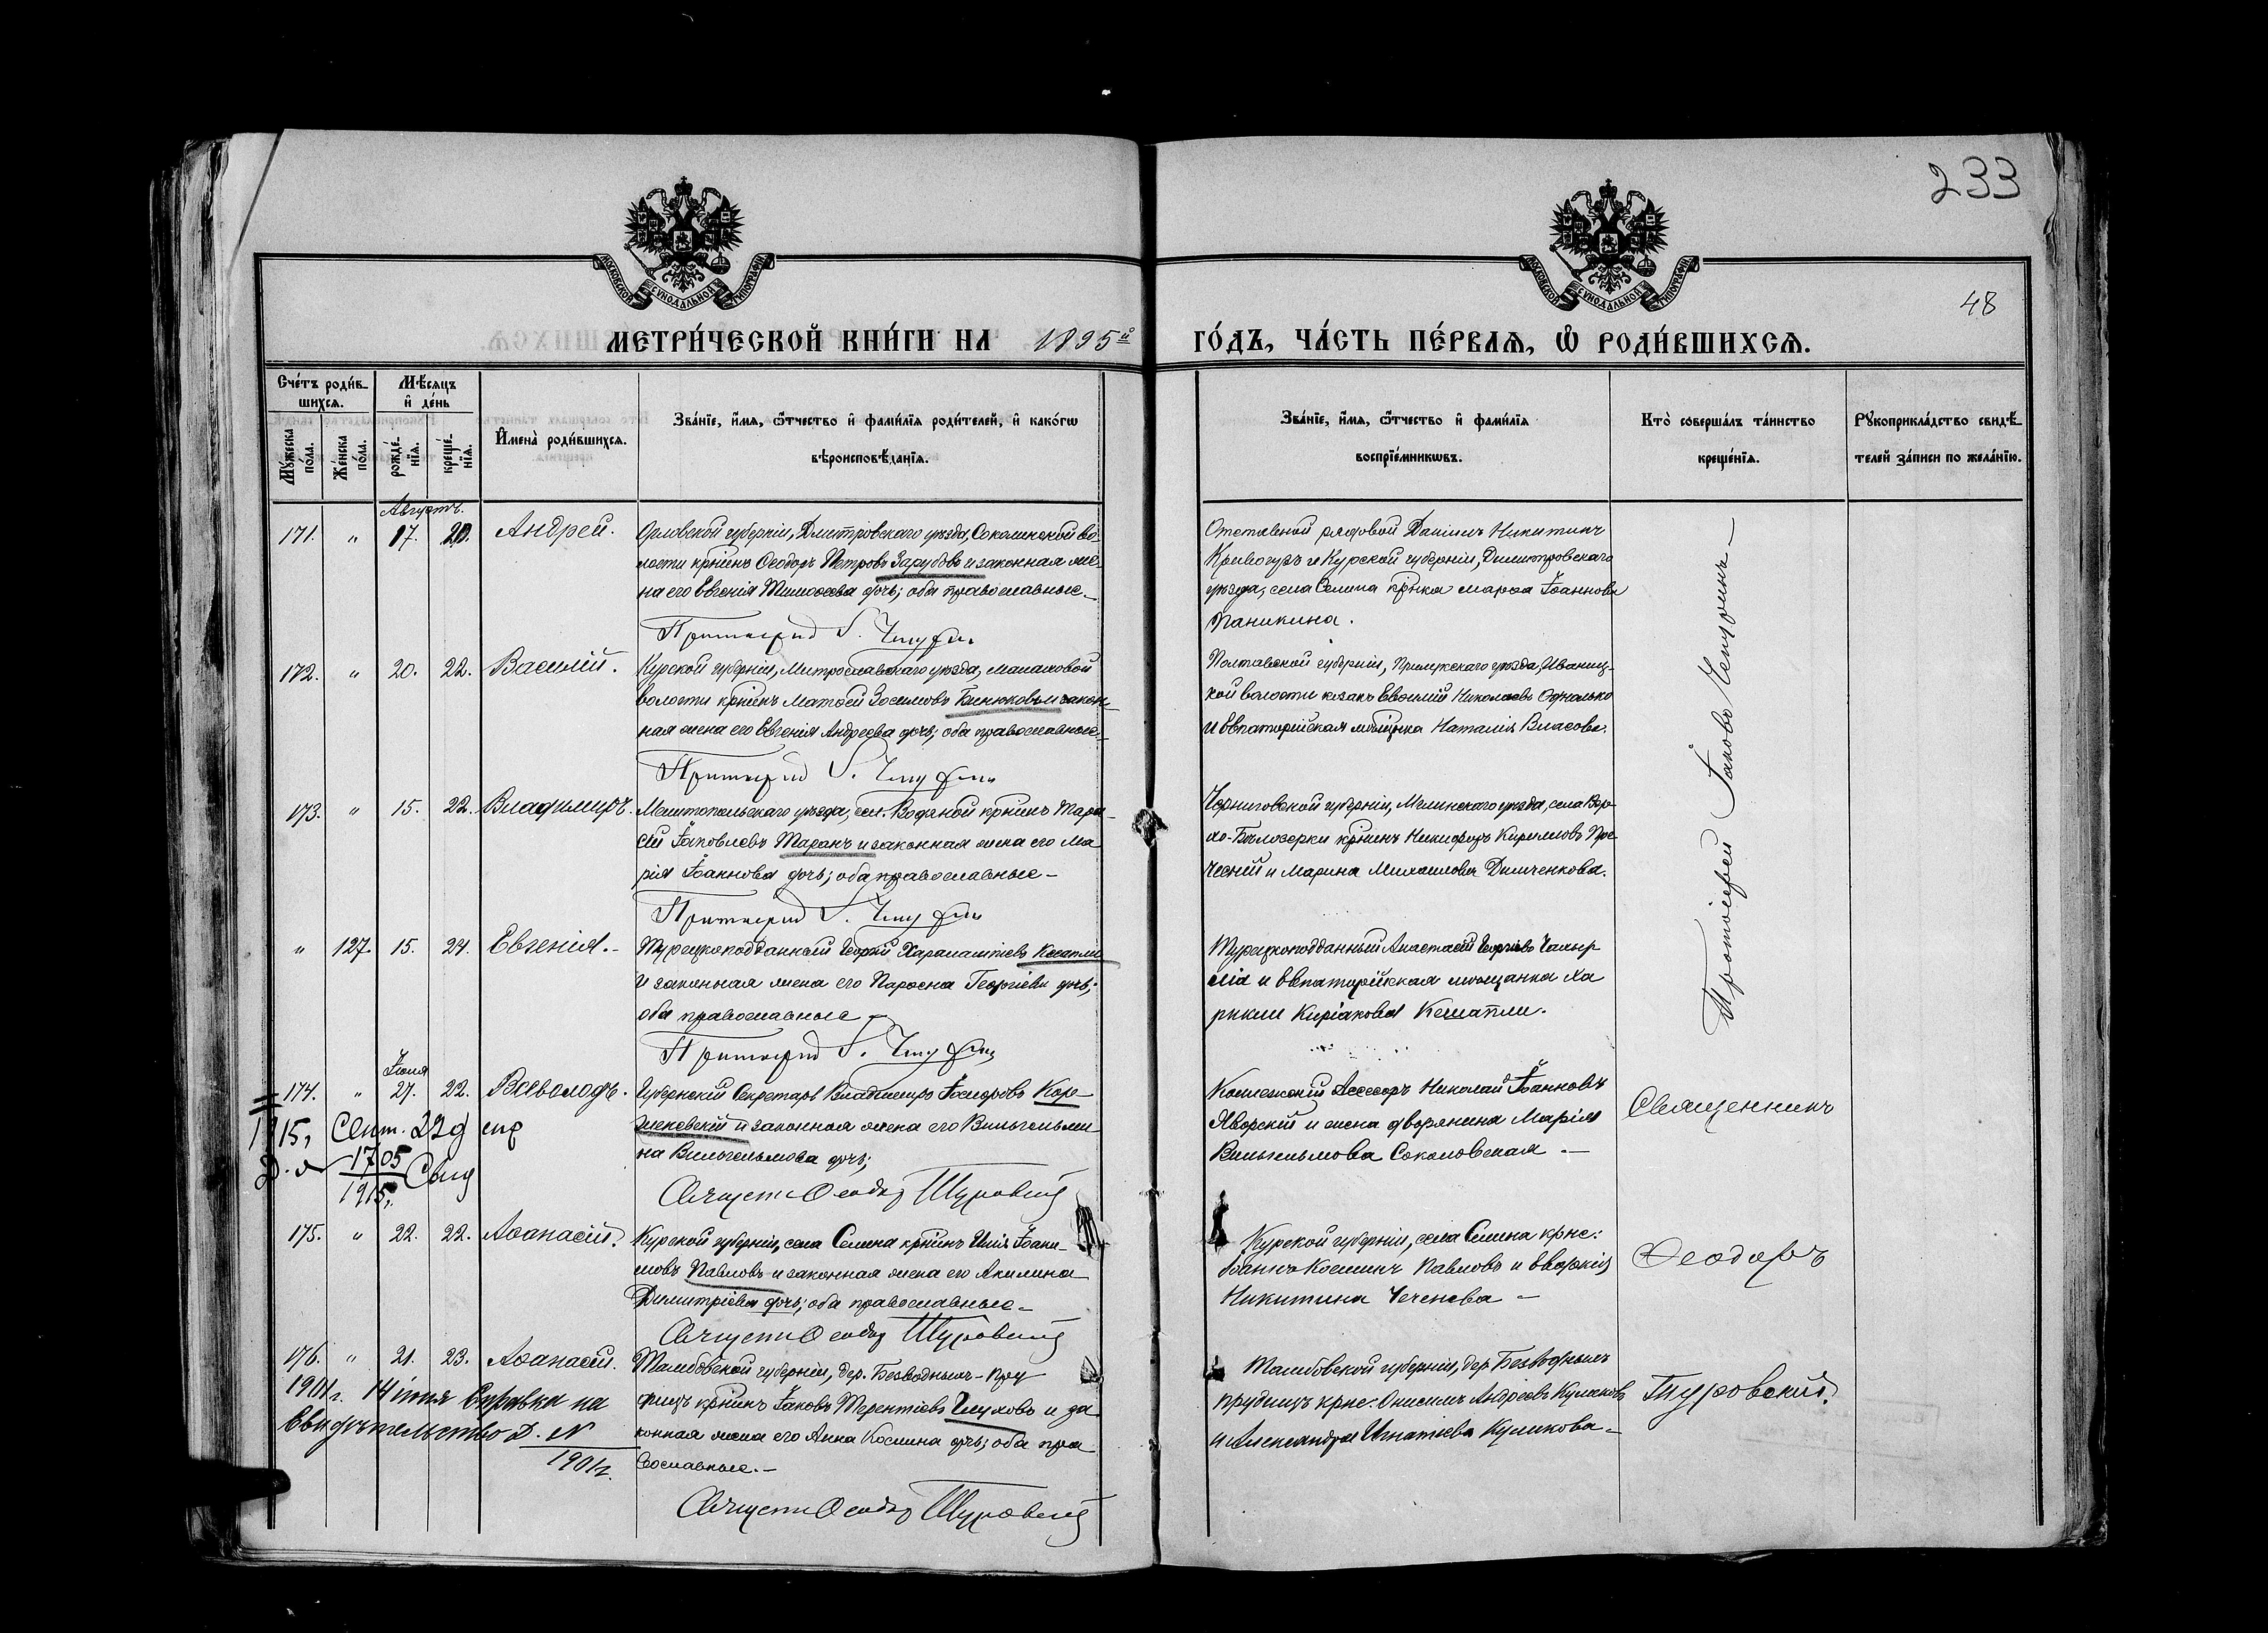 233
48
МОСКОВСКОЙ СѴНОДАЛЬНОЙ ТИПОГРАФІИ
МОСКОВСКОЙ СѴНОДАЛЬНОЙ ТИПОГРАФІИ
МЕТРИ́ЧЕСКОЙ КНИ́ГИ НА 1895й ГО́ДЪ, ЧА́СТЬ ПЕ́РВАѦ, Ѡ҆ РОДИ́ВШИХСѦ.
Сче́тъ роди́в-
шихсѧ.
Мꙋ́жеска по́ла.
Же́нска по́ла.
Мѣ́сѧцъ
и҆ де́нь
рожде́нїѧ.
креще́нїѧ.
И҆мена̀ роди́вшихсѧ.
Зва́нїе, и҆́мѧ, ѻ҆́тчество и҆ фами́лїѧ роди́телей, и҆ како́гѡ
вѣроисповѣ́данїѧ.
Зва́нїе, и҆́мѧ, ѻ҆́тчество и҆ фами́лїѧ
воспрїе́мникѡвъ.
Кто̀ соверша́лъ та́инство
креще́нїѧ.
Рꙋкоприкла́дство свидѣ́-
телей за́писи по жела́нїю.
Августъ.
171. " 17. 20. Андрей.
Орловской губерніи, Дмитровскаго уѣзда, Соколинской во-
лости крнинъ Ѳеодоръ Петровъ Зарубовъ и законная же-
на его Евгенія Тимоѳеева дочь; оба православные.
Протоіерей І. Чепуринъ
Отставной рядовой Даніилъ Никитинъ
Кривогузъ и Курской губерніи, Димитровскаго
уѣзда, села Селина крнка Марѳа Іоаннова
Паникина.
Протоіерей Іаковъ Чепуринъ
172. " 20. 22. Василій.
Курской губерніи, уѣзда,
волости крнинъ Матѳей Зосимовъ и закон-
ная жена его Евгенія Андреева дочь; оба православные
Протоіерей І. Чепуринъ
Полтавской губерніи, Прилукскаго уѣзда, Иваниц-
кой волости козакъ Евѳимій Николаевъ
и Евпаторійская мѣщанка Наталія Власова.
173. " 15. 22. Владимиръ.
Мелитопольскаго уѣзда, сел. Водяной крнинъ Тара-
сій Іаковлевъ Таранъ и законная жена его Ма-
рія Іоаннова дочь; оба православные
Протоіерей І. Чепуринъ
Черниговской губерніи, Мглинскаго уѣзда, села
крнинъ Никифоръ Кирилловъ
и Марина Михаилова Димченкова.
" 127. 15. 24. Евгенія.
Турецкоподданный Георгій Харалампіевъ
и законная жена его Параскева Георгіева дочь;
оба православные
Протоіерей І. Чепуринъ
Турецкоподданный Анастасій Георгіевъ
и Евпаторійская мѣщанка Ха-
рикли Киріакова Кешапли.
Іюля
174. " 27. 22. Всеволодъ.
Губернскій Секретарь Владимиръ Іосифовъ
и законная жена его Вильгельми-
на Вильгельмова дочь;
Священ. Ѳеодоръ Туровскій
Коллежскій Ассесоръ Николай Іоанновъ
Яворскій и жена дворянина Марія
Вильгельмова Соколовская
Священникъ
1915, Сент. 22д
1705
1915, Свид
175. " 22. 22. Аѳанасій.
Курской губерніи, села Селина крнинъ Илія
Павловъ и законная жена его Акилина
Димитріева дочь; оба православные
Священ. Ѳеодоръ Туровскій
Курской губерніи, села Селина крнс:
Іоаннъ Космин Павловъ и Евдокія
Никитина
Ѳеодоръ
176. " 21. 23. Аѳанасій.
Тамбовской губерніи, дер. Безводныхъ-Пру-
дищъ крнинъ Іаковъ Терентіевъ и за-
конная жена его Анна Космина дочь; оба пра-
вославные.
Священ. Ѳеодоръ Туровскій
Тамбовской губерніи, дер. Безводныхъ
прудищъ крнс: Онисимъ Андреевъ Куликовъ
и Александра Игнатіева Куликова
Туровскій.
1901г. 14 іюня Справка на
Свидѣтельство Д. N
1901г.